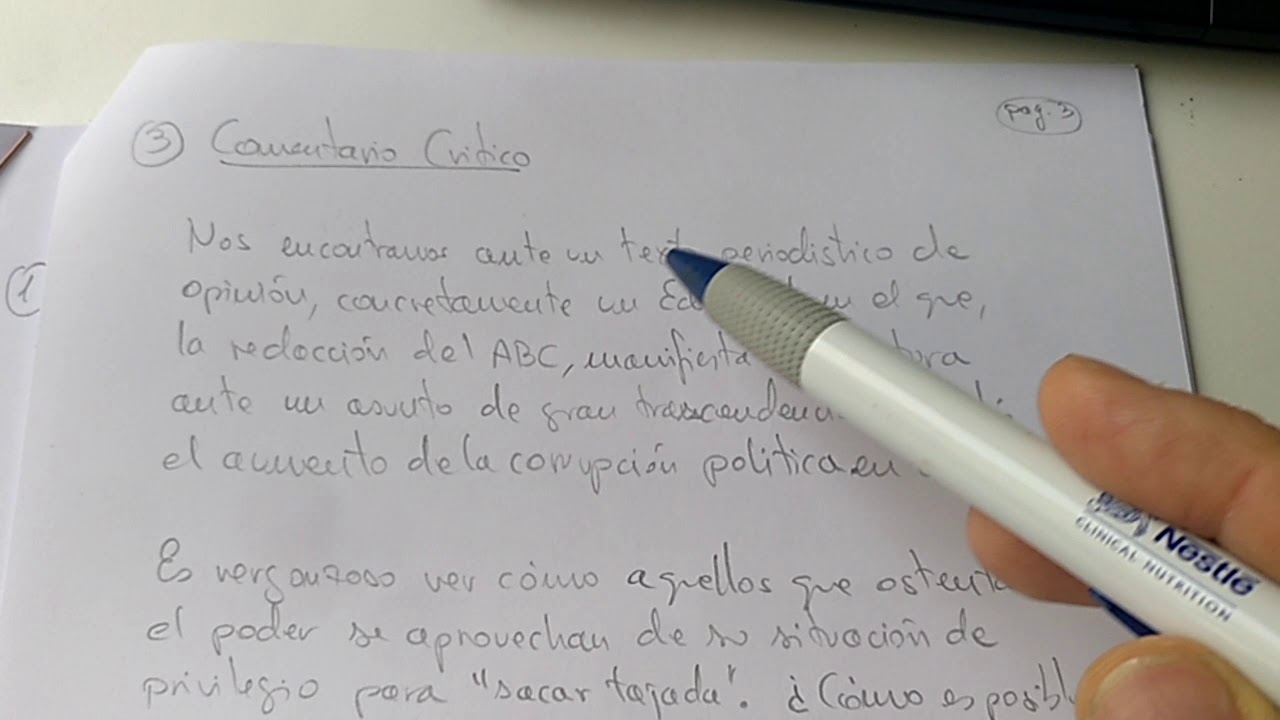 pag. 3
3 Comentario Critico
Nos encontramos ante un periodistico de
opinión, concretamente un el que,
la redacción del ABC, manifiesta
ante un asunto de gran
el aumento de la corrupción politica en
1
Es vergonzoso ver cómo aquellos que
el poder se aprovechan de su situación de
privilegio para "sacar tajada". ¿Cómo es
Nestlé
CLINICAL NUTRITION